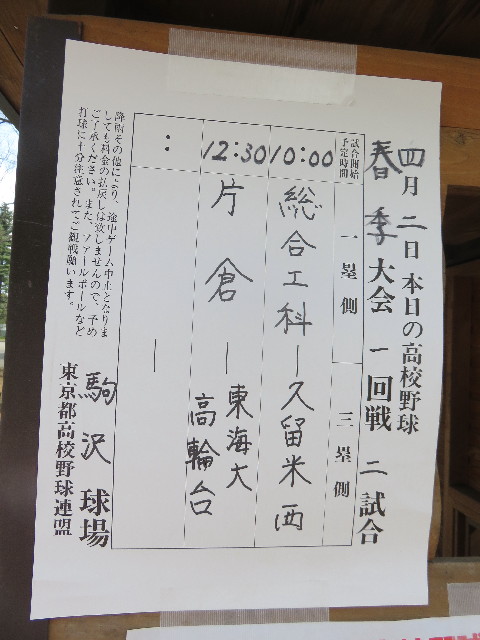 四月二日 本日の高校野球
春季大会 一回戦 二試合
試合開始予定時間
一塁側
三塁側
10:00
総合工科ー久留米西
12:30
片倉ー東海大高輪台
:
ー
降雨その他により、途中ゲーム中止となりま
しても料金の払戻しは致しませんので、予め
ご了承ください。また、ファールボールなど
打球に十分注意されてご観戦願います。
駒沢球場
東京都高校野球連盟